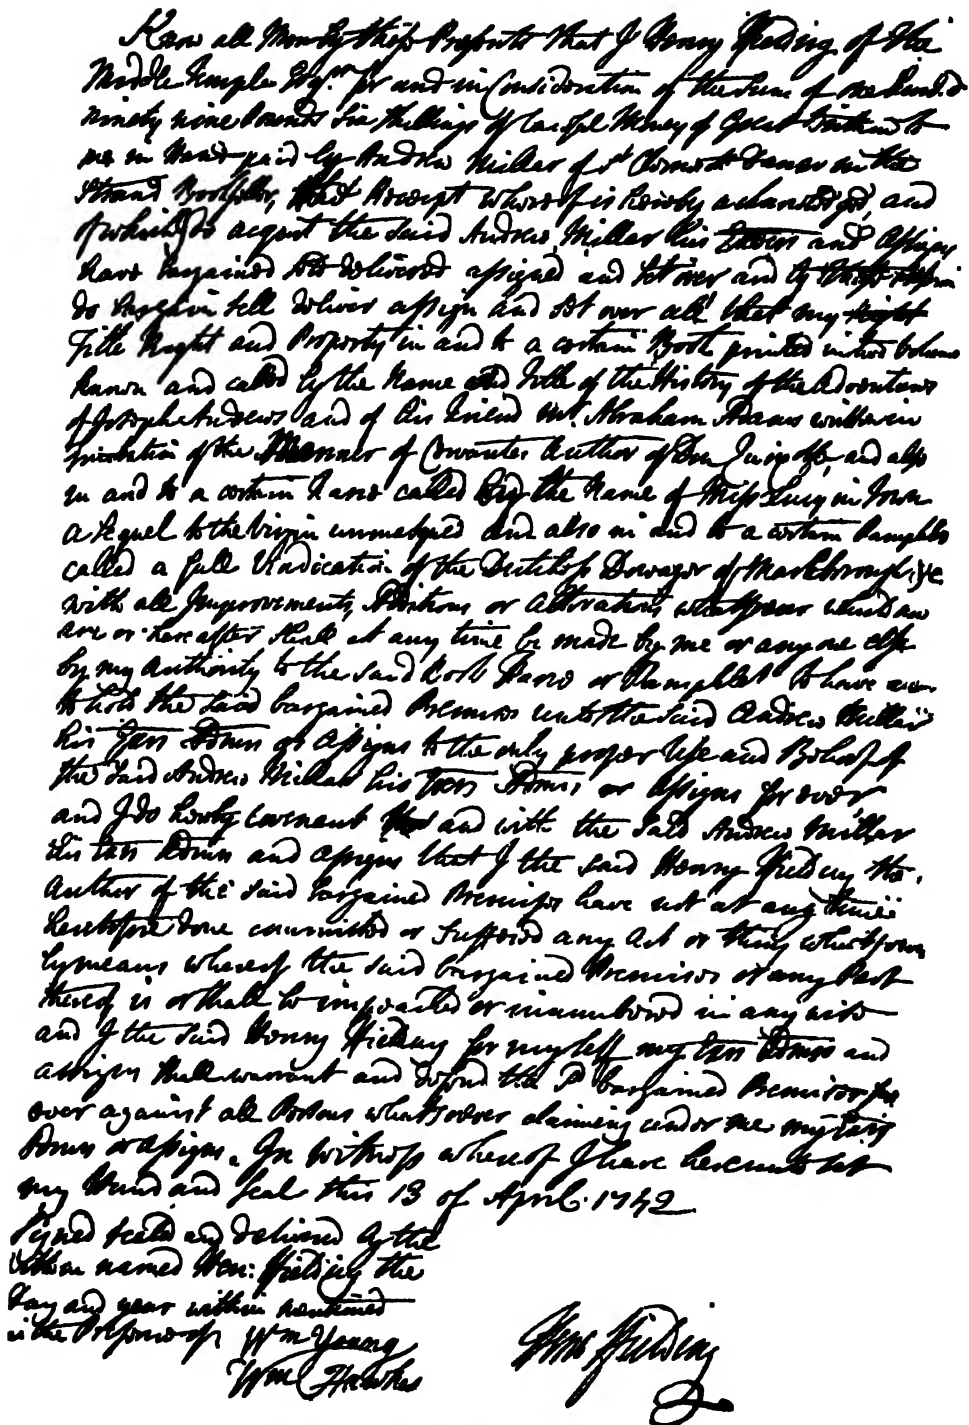 Know all Men by these Presents that I Henry Fielding of the
Middle Temple Esqr. for and in Consideration of the Sum of one hund.d
ninety nine Pounds six shillings of lawful Money of Great Britain to
me in Hand paid by Andrew Millar of St Clement Danes in the
Strand Bookseller, the Receipt whereof is hereby acknowledged, and
of which do acquit the said Andrew Millar his Exors and Assigns
have bargained sold delivered assigned and set over and by these
do bargain sell deliver assign and set over all that my Right
Title Right and Property in and to a certain Book printed in two Volumes
known and called by the Name and Title of the History of the Adventures
of Joseph Andrews and of his Friend Mr. Abraham Adams written in
imitation of the Manner of Cervantes Author of Don Quixotte, and also
in and to a certain Farce called by the Name of Miss Lucy in Town
a Sequel to the Virgin unmasqued and also in and to a certain Pamphlet
called a full Vindication of the Dutchess Dowager of Marlborough, &c
with all Improvements, Additions or Alterations whatsoever which now
are or hereafter shall at any time be made by me or any one else
by my authority to the said Book Farce or Pamphlet To have and
to hold the said bargained Premises unto the said Andrew Millar
his Exors Admrs or Assigns to the only proper Use and Behoof of
the said Andrew Millar his Exors Admrs or Assigns for ever
and I do hereby covenant to and with the said Andrew Millar
his Exrs Admrs and Assigns that I the said Henry Fielding the
Author of the said bargained Premises have not at any time
heretofore done committed or suffered any Act or thing whatsoever
by means whereof the said bargained Premises or any Part
thereof is or shall be impeached or incumbered in any wise
and I the said Henry Fielding for myself my Exrs Admrs and
assigns shall warrant and defend the sd bargained Premises for
ever against all Persons whatsoever claiming under me my Exrs
Admrs or Assigns. In Witness whereof I have hereunto set
my Hand and Seal this 13 of April 1742
Signed sealed and delivered by the
within named Hen: Fielding the
Day and year within mentioned
in the Presence of Wm Young
Wm Hawkes
Hen Fielding